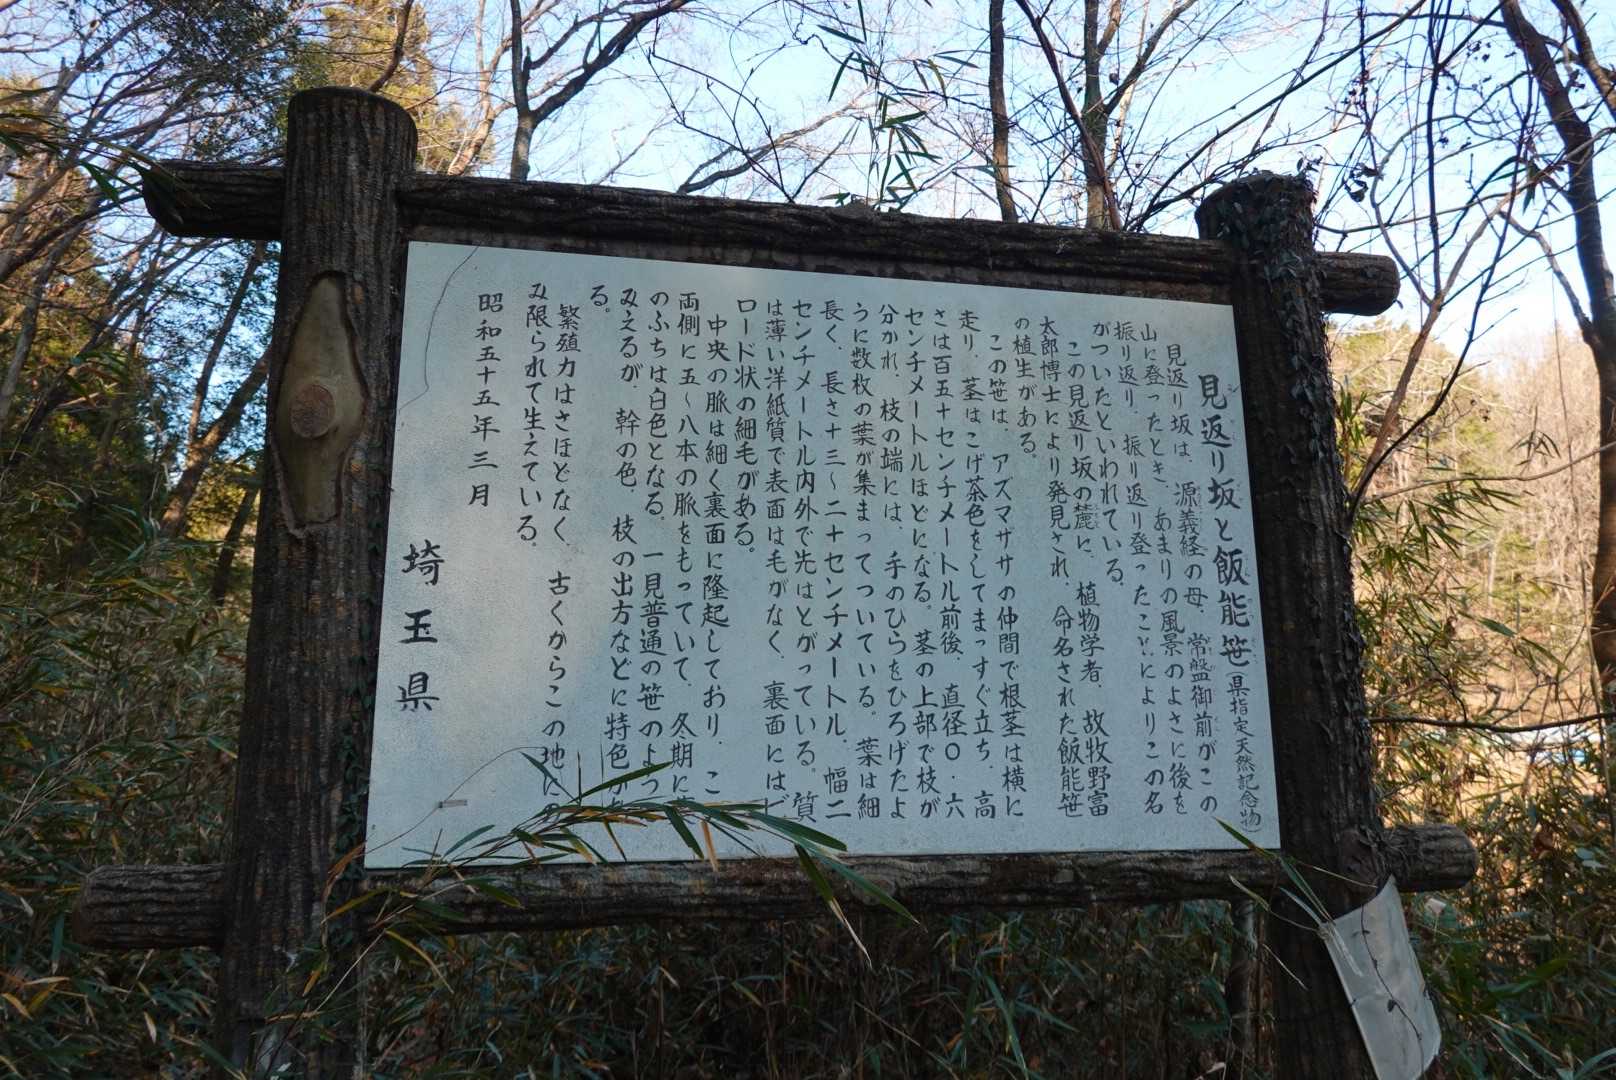 見返り坂と飯能笹(県指定天然記念物)
見返り坂は、源義経の母、常盤御前がこの
山に登ったとき、あまりの風景のよさに後を
振り返り、振り返り登ったことによりこの名
がついたといわれている。
この見返り坂の麓に、植物学者、故牧野富
太郎博士により発見され、命名された飯能笹
の植生がある。
この笹は、アズマザサの仲間で根茎は横に
走り、茎はこげ茶色をしてまっすぐ立ち、高
さは百五十センチメートル前後、直径〇・六
センチメートルほどになる。茎の上部で枝が
分かれ、枝の端には、手のひらをひろげたよ
うに数枚の葉が集まってついている。葉は細
長く、長さ十三〜二十センチメートル、幅二
センチメートル内外で先はとがっている。質
は薄い洋紙質で表面は毛がなく、裏面にはビ
ロード状の細毛がある。
中央の脈は細く裏面に隆起しており、こ
両側に五〜八本の脈をもっていて、冬期に
のふちは白色となる。一見普通の笹のよう
みえるが、幹の色、枝の出方などに特色が
る。
繁殖力はさほどなく、古くからこの地にの
み限られて生えている。
昭和五十五年三月
埼玉県